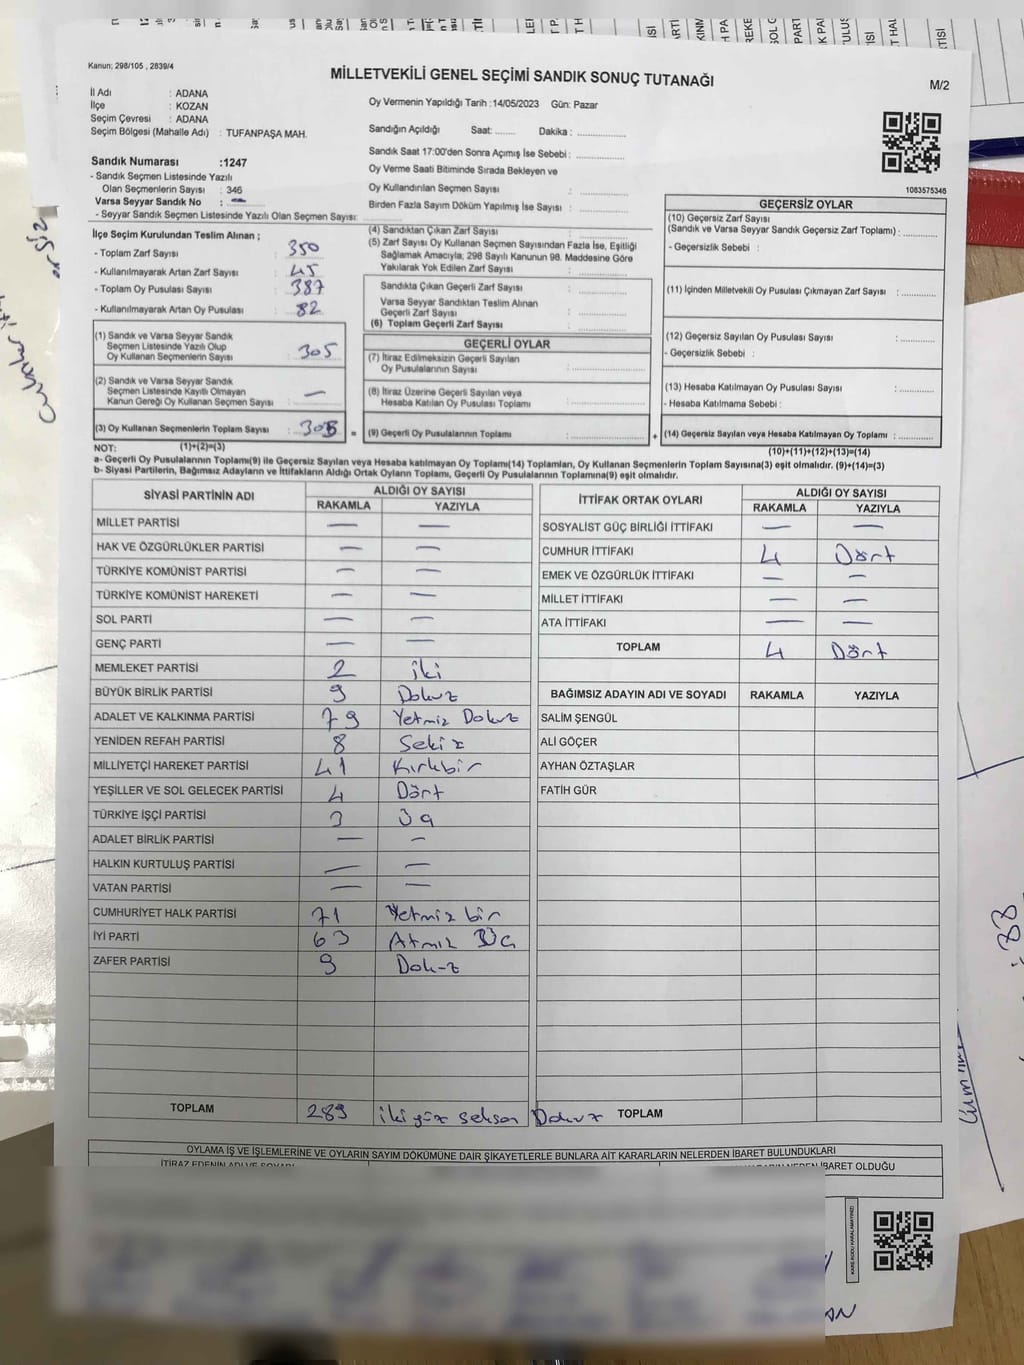 Kanun: 298/105 , 2839/4
MİLLETVEKİLİ GENEL SEÇİMİ SANDIK SONUÇ TUTANAĞI
M/2
İl Adı : ADANA
İlçe : KOZAN
Seçim Çevresi : ADANA
Seçim Bölgesi (Mahalle Adı) : TUFANPAŞA MAH.
Oy Vermenin Yapıldığı Tarih :14/05/2023 Gün: Pazar
Sandığın Açıldığı Saat: ........ Dakika : ..............
Sandık Saat 17:00'den Sonra Açımış İse Sebebi : ..............
Oy Verme Saati Bitiminde Sırada Bekleyen ve
Oy Kullandırılan Seçmen Sayısı : ..............
Birden Fazla Sayım Döküm Yapılmış İse Sayısı : ..............
1083575346
Sandık Numarası :1247
- Sandık Seçmen Listesinde Yazılı
Olan Seçmenlerin Sayısı : 346
Varsa Seyyar Sandık No : —
- Seyyar Sandık Seçmen Listesinde Yazılı Olan Seçmen Sayısı: ..............
İlçe Seçim Kurulundan Teslim Alınan ;
- Toplam Zarf Sayısı : 350
- Kullanılmayarak Artan Zarf Sayısı : 45
- Toplam Oy Pusulası Sayısı : 387
- Kullanılmayarak Artan Oy Pusulası : 82
(1) Sandık ve Varsa Seyyar Sandık
Seçmen Listesinde Yazılı Olup
Oy Kullanan Seçmenlerin Sayısı : 305
(2) Sandık ve Varsa Seyyar Sandık
Seçmen Listesinde Kayıtlı Olmayan
Kanun Gereği Oy Kullanan Seçmen Sayısı : —
(3) Oy Kullanan Seçmenlerin Toplam Sayısı : 305
(1)+(2)=(3)
(4) Sandıktan Çıkan Zarf Sayısı : ..............
(5) Zarf Sayısı Oy Kullanan Seçmen Sayısından Fazla İse, Eşitliği
Sağlamak Amacıyla; 298 Sayılı Kanunun 98. Maddesine Göre
Yakılarak Yok Edilen Zarf Sayısı : ..............
Sandıkta Çıkan Geçerli Zarf Sayısı : ..............
Varsa Seyyar Sandıktan Teslim Alınan
Geçerli Zarf Sayısı : ..............
(6) Toplam Geçerli Zarf Sayısı : ..............
GEÇERLİ OYLAR
(7) İtiraz Edilmeksizin Geçerli Sayılan
Oy Pusulalarının Sayısı : ..............
(8) İtiraz Üzerine Geçerli Sayılan veya
Hesaba Katılan Oy Pusulası Toplamı : ..............
= (9) Geçerli Oy Pusulalarının Toplamı : ..............
GEÇERSİZ OYLAR
(10) Geçersiz Zarf Sayısı
(Sandık ve Varsa Seyyar Sandık Geçersiz Zarf Toplamı) : ..............
- Geçersizlik Sebebi :
(11) İçinden Milletvekili Oy Pusulası Çıkmayan Zarf Sayısı : ..............
(12) Geçersiz Sayılan Oy Pusulası Sayısı : ..............
- Geçersizlik Sebebi :
(13) Hesaba Katılmayan Oy Pusulası Sayısı : ..............
- Hesaba Katılmama Sebebi :
+ (14) Geçersiz Sayılan veya Hesaba Katılmayan Oy Toplamı : ..............
(10)+(11)+(12)+(13)=(14)
NOT:
a- Geçerli Oy Pusulalarının Toplamı(9) ile Geçersiz Sayılan veya Hesaba katılmayan Oy Toplamı(14) Toplamları, Oy Kullanan Seçmenlerin Toplam Sayısına(3) eşit olmalıdır. (9)+(14)=(3)
b- Siyasi Partilerin, Bağımsız Adayların ve İttifakların Aldığı Ortak Oyların Toplamı, Geçerli Oy Pusulalarının Toplamına(9) eşit olmalıdır.
SİYASİ PARTİNİN ADI ALDIĞI OY SAYISI
RAKAMLA YAZIYLA
MİLLET PARTİSİ — —
HAK VE ÖZGÜRLÜKLER PARTİSİ — —
TÜRKİYE KOMÜNİST PARTİSİ — —
TÜRKİYE KOMÜNİST HAREKETİ — —
SOL PARTİ — —
GENÇ PARTİ — —
MEMLEKET PARTİSİ 2 iki
BÜYÜK BİRLİK PARTİSİ 9 Dokuz
ADALET VE KALKINMA PARTİSİ 79 Yetmiz Dokuz
YENİDEN REFAH PARTİSİ 8 Sekiz
MİLLİYETÇİ HAREKET PARTİSİ 41 Kırkbir
YEŞİLLER VE SOL GELECEK PARTİSİ 4 Dört
TÜRKİYE İŞÇİ PARTİSİ 3 Üç
ADALET BİRLİK PARTİSİ — —
HALKIN KURTULUŞ PARTİSİ — —
VATAN PARTİSİ — —
CUMHURİYET HALK PARTİSİ 71 Yetmiz bir
İYİ PARTİ 63 Atmız Üç
ZAFER PARTİSİ 9 Dokuz
TOPLAM 289 iki yüz seksen Dokuz
İTTİFAK ORTAK OYLARI ALDIĞI OY SAYISI
RAKAMLA YAZIYLA
SOSYALİST GÜÇ BİRLİĞİ İTTİFAKI — —
CUMHUR İTTİFAKI 4 Dört
EMEK VE ÖZGÜRLÜK İTTİFAKI — —
MİLLET İTTİFAKI — —
ATA İTTİFAKI — —
TOPLAM 4 Dört
BAĞIMSIZ ADAYIN ADI VE SOYADI RAKAMLA YAZIYLA
SALİM ŞENGÜL
ALİ GÖÇER
AYHAN ÖZTAŞLAR
FATİH GÜR
TOPLAM
OYLAMA İŞ VE İŞLEMLERİNE VE OYLARIN SAYIM DÖKÜMÜNE DAİR ŞİKAYETLERLE BUNLARA AİT KARARLARIN NELERDEN İBARET BULUNDUKLARI
İTİRAZ EDENİN ADI VE SOYADI
NEDEN İBARET OLDUĞU
KARE KODU KARALAMAYINIZ!